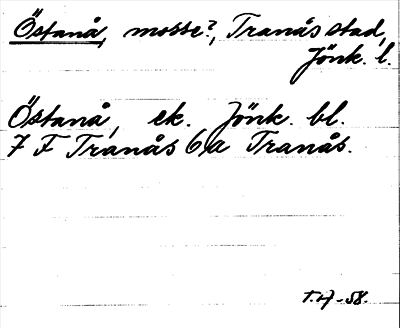 Östanå, mosse?, Tranås stad,
Jönk. l.
Östanå, ek. Jönk. bl.
7 F Tranås 6a Tranås.